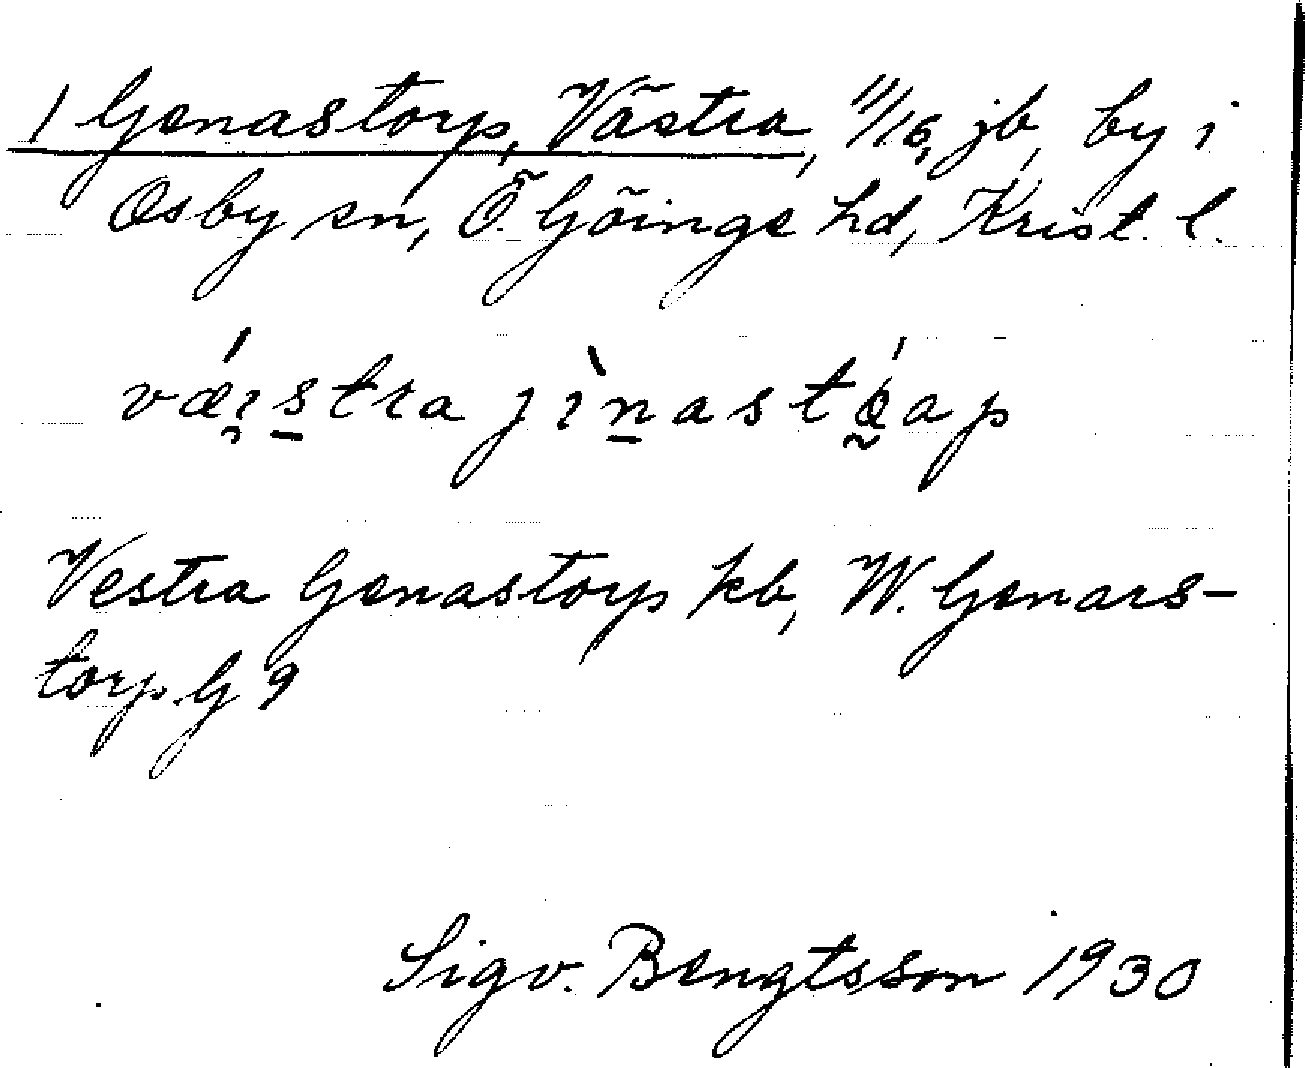 1 Genastorp, Västra, 11/16, jb, by i
Osby sn, Ö. Göinge hd, Krist. l.
Vestra Genastorp kb, W. Genars-
torp G 9
Sigv. Bengtsson 1930